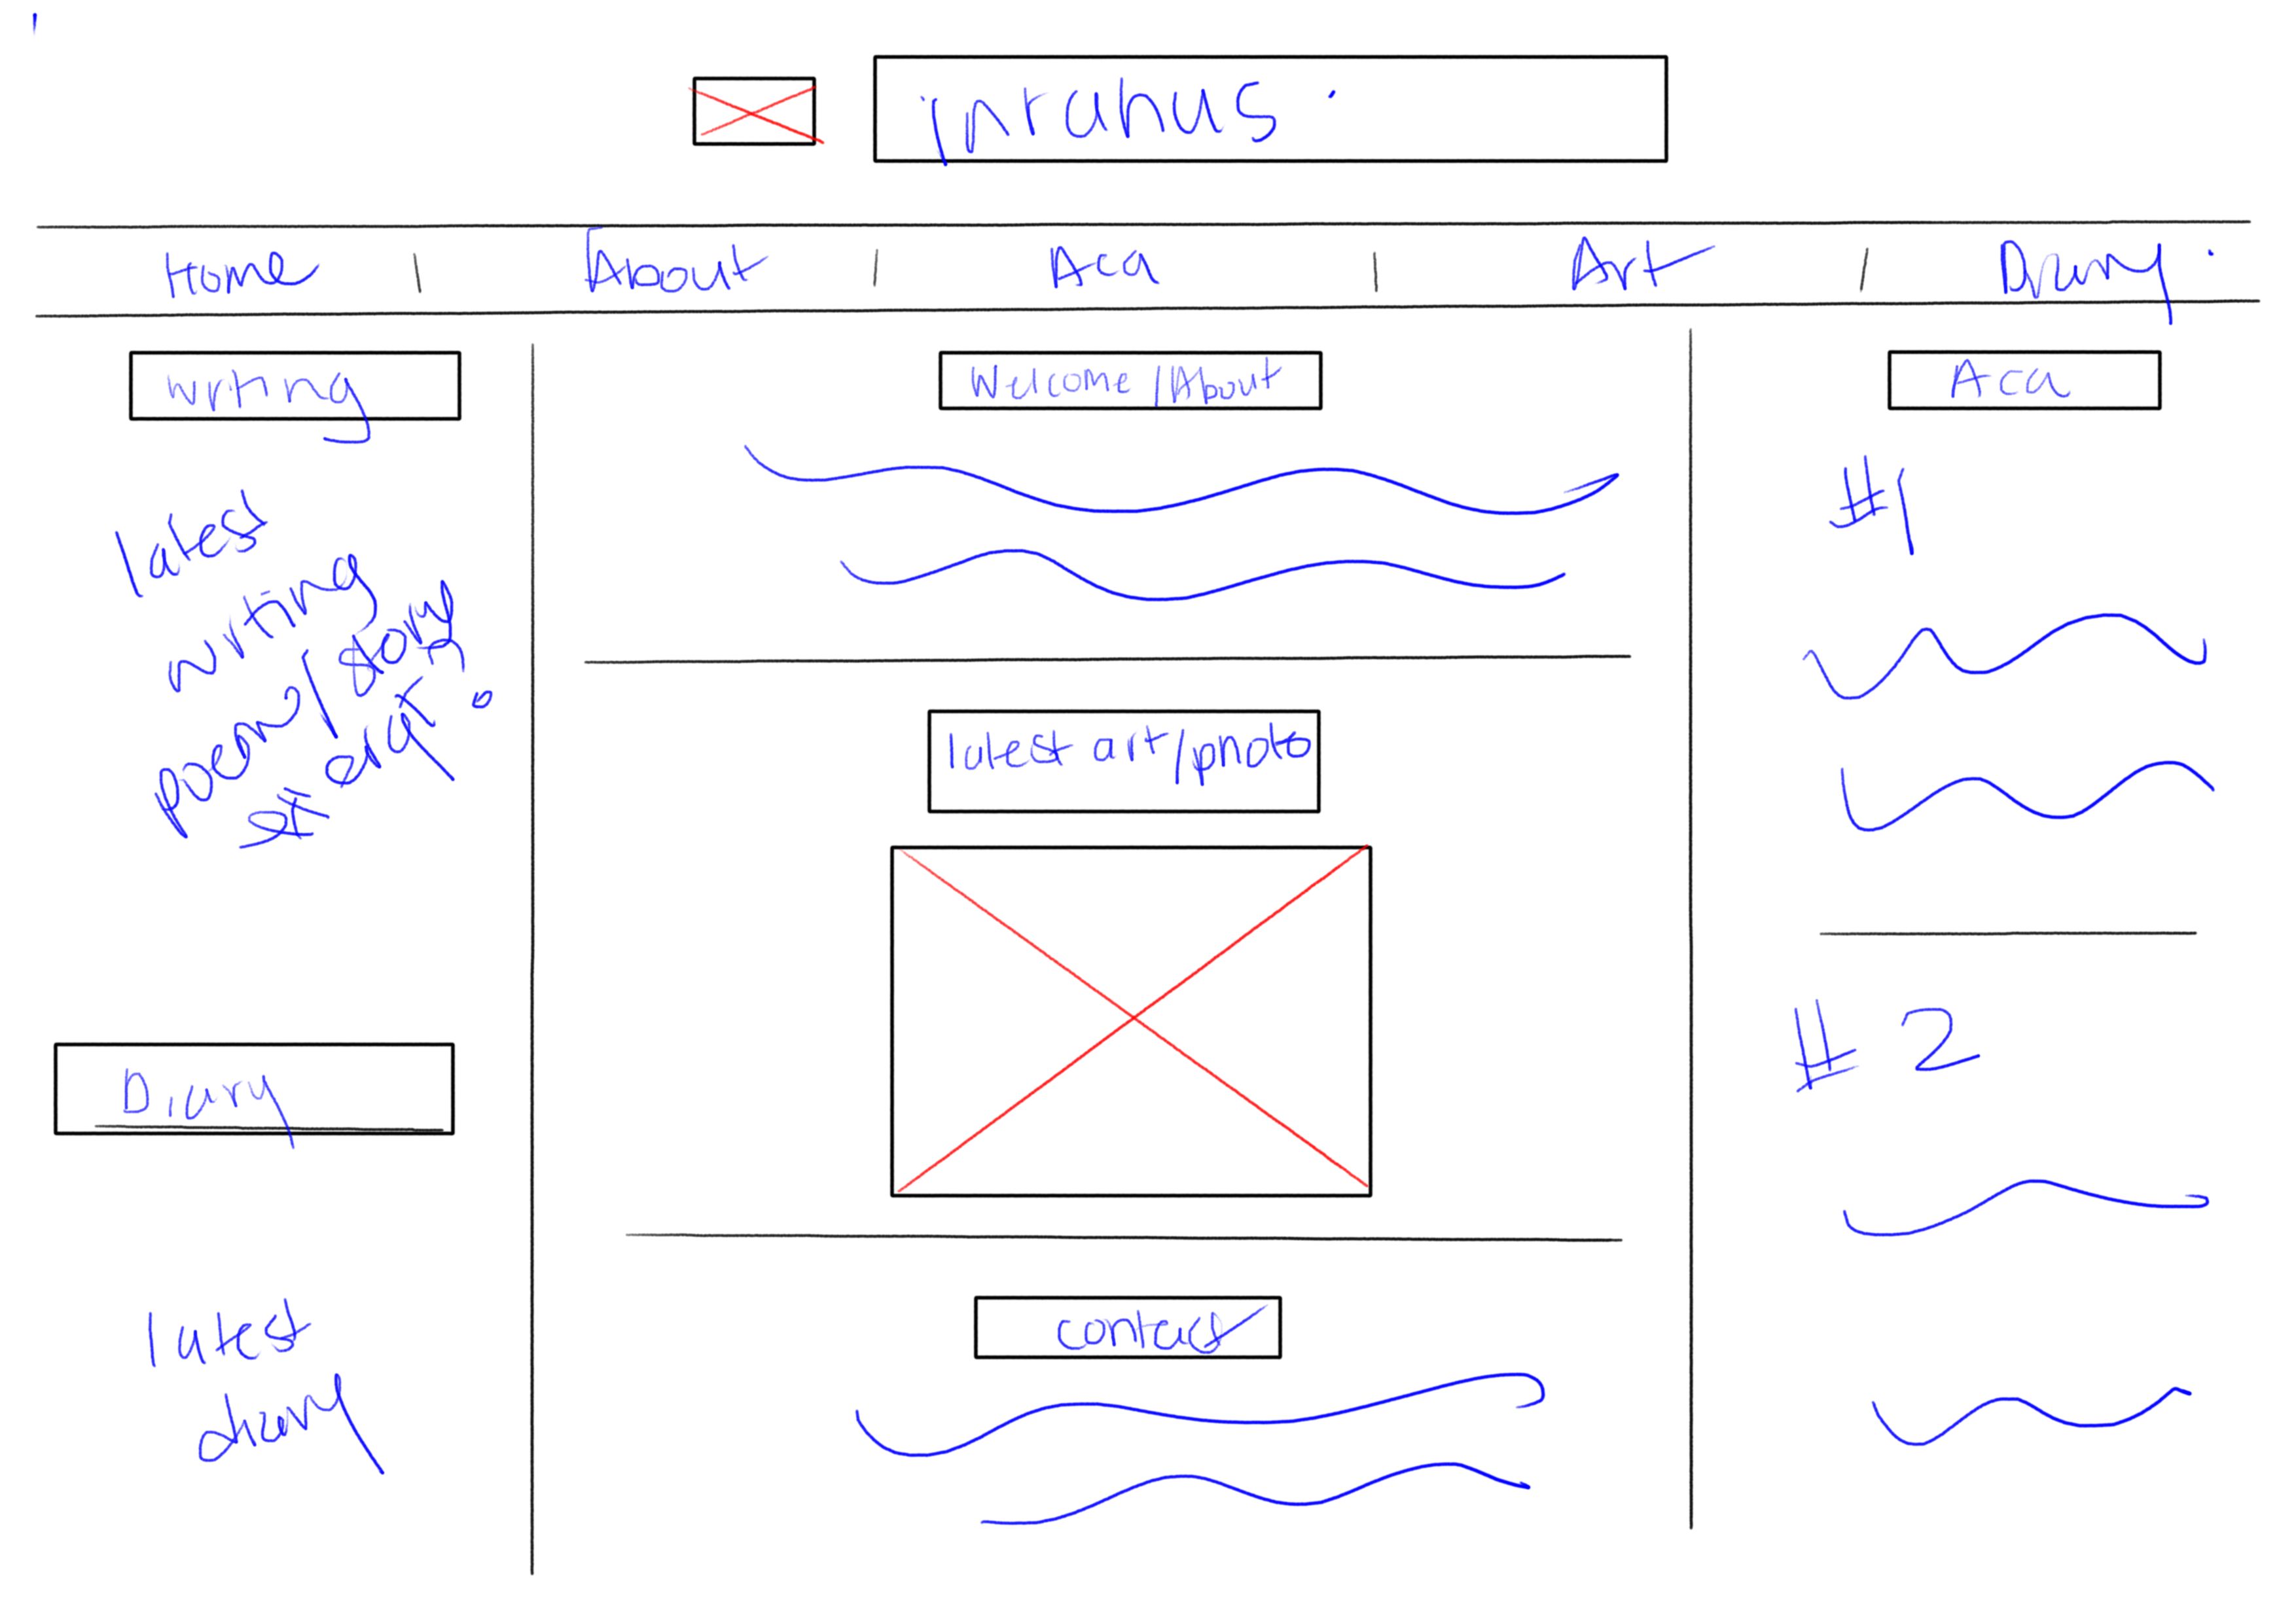 inrahus.
Home | About | Aca | Art | Diary.
Writing
latest
writing
poem/story
Diary
latest
diary
Welcome/About
latest art/photo
contact
Aca
#1
# 2